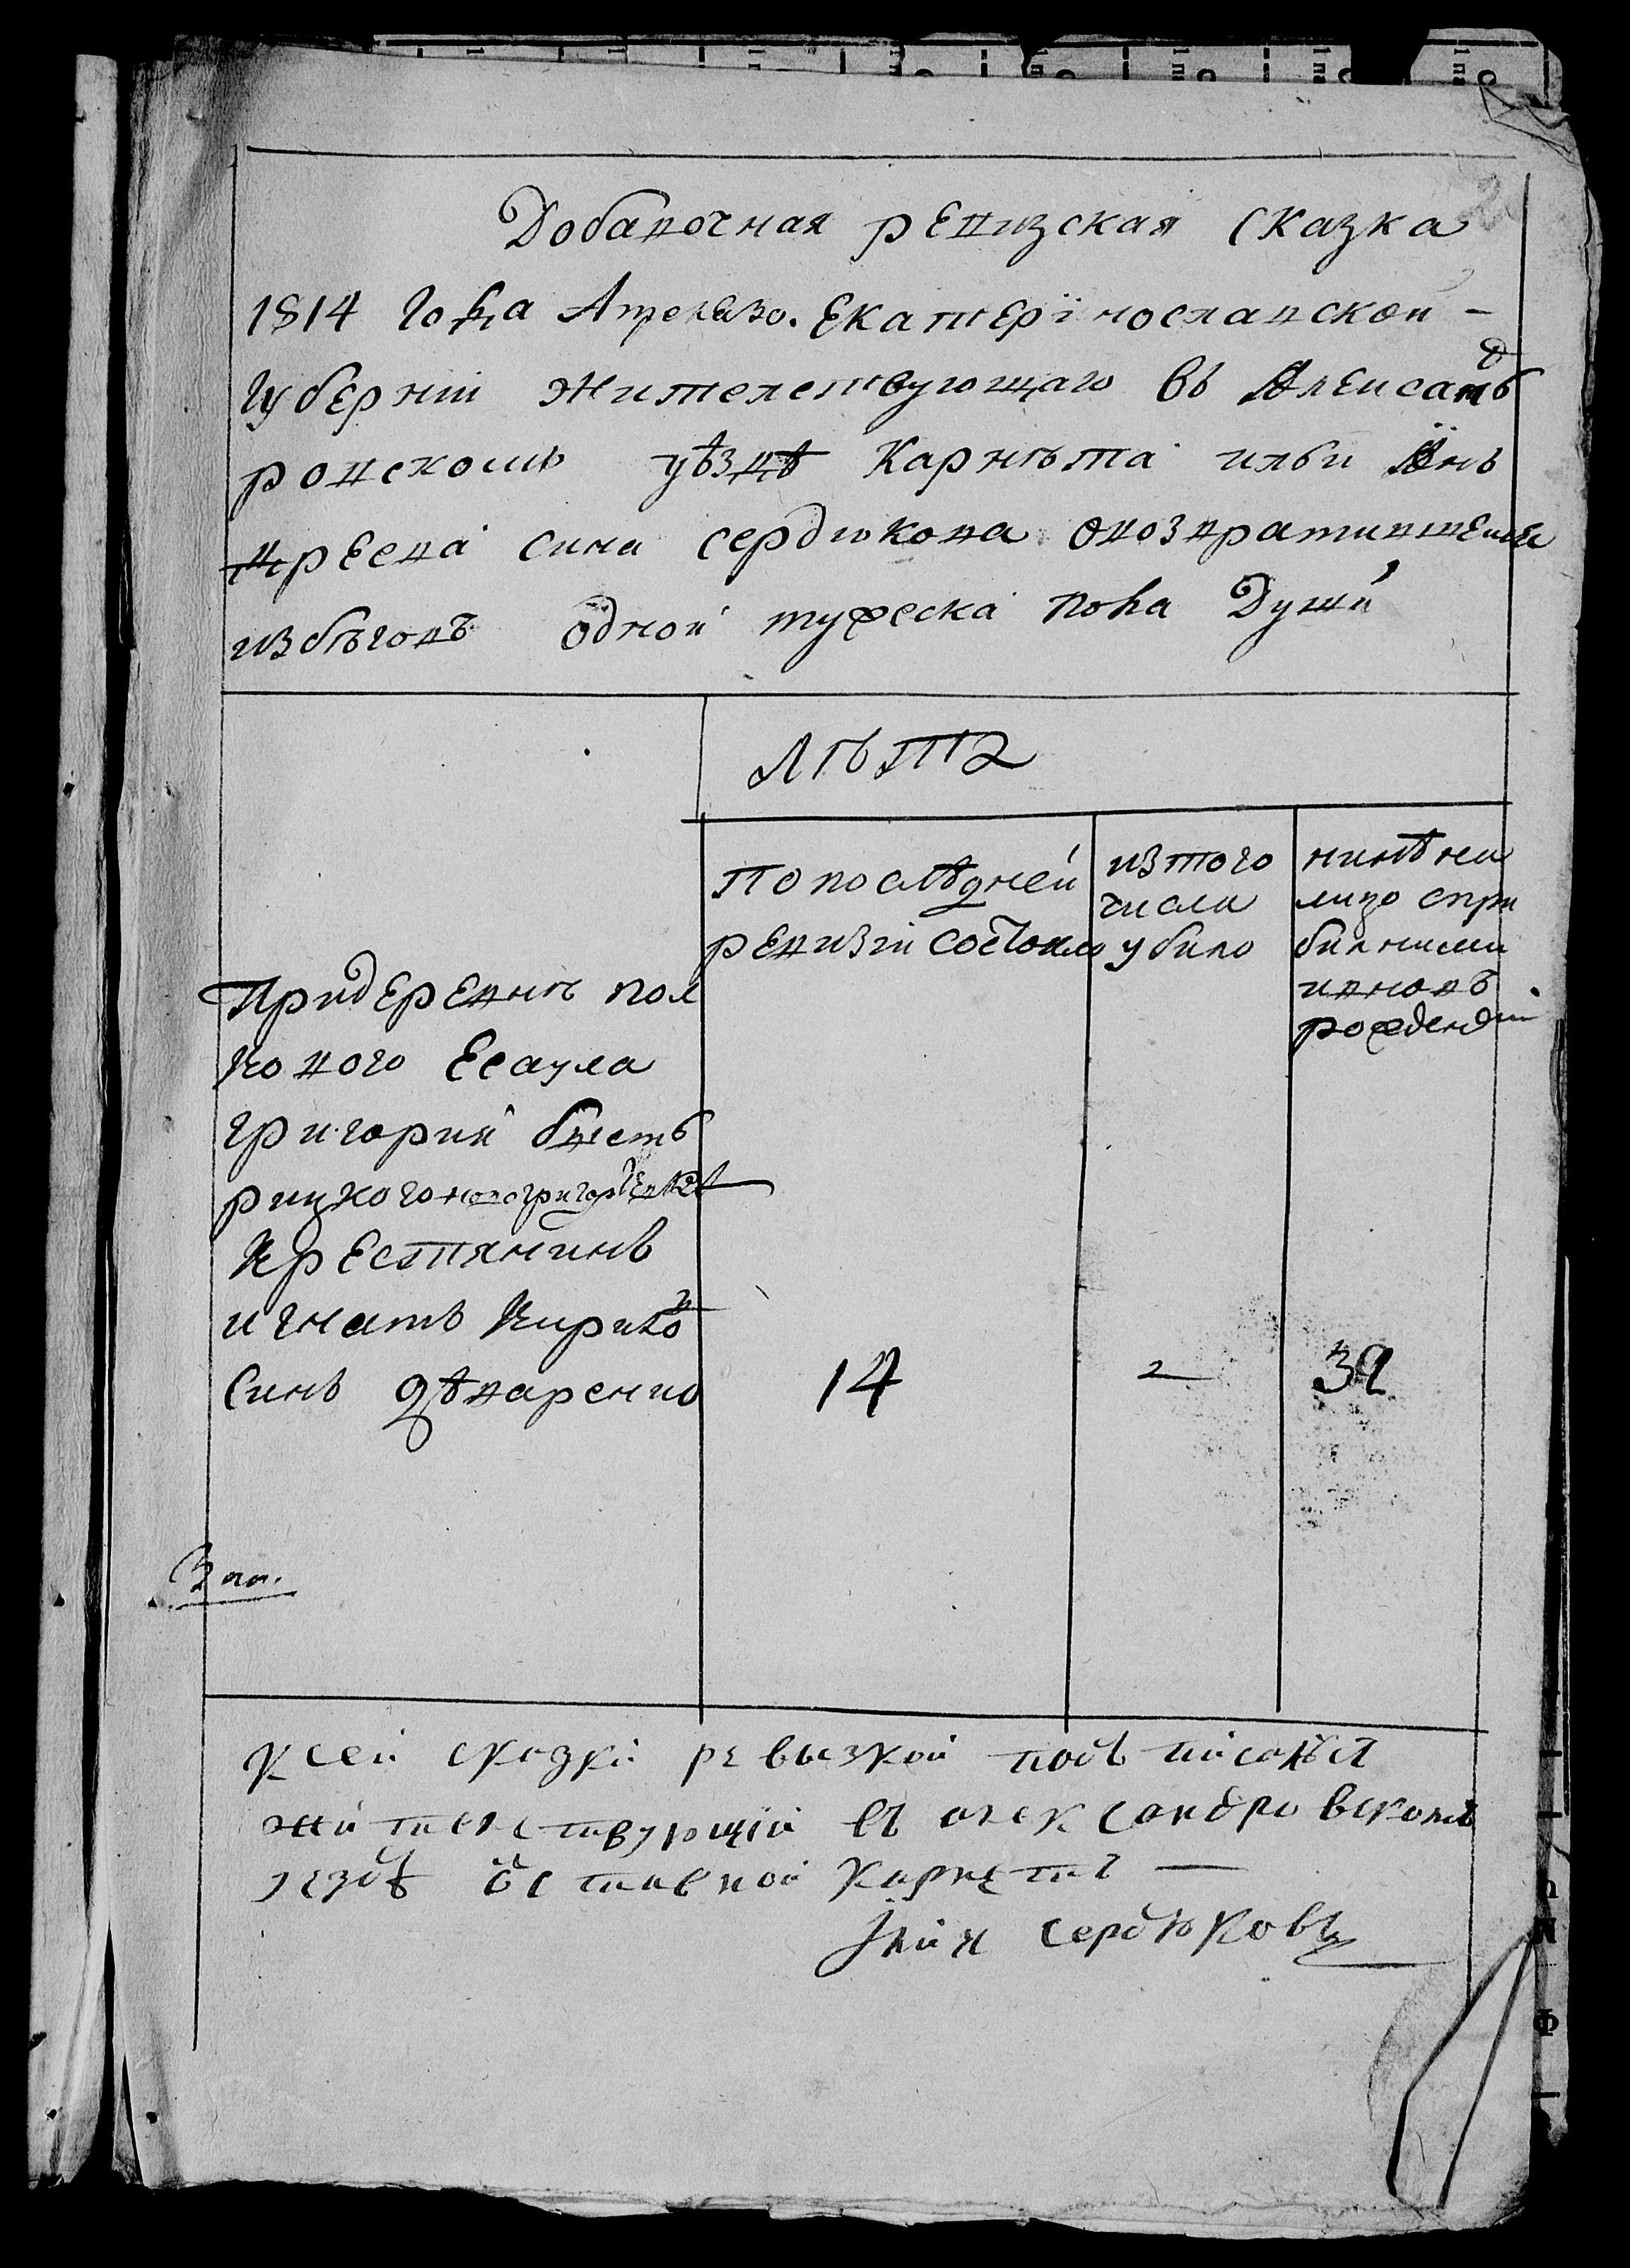 Добавочная ревизская сказка
1814 года Апреля 30. Екатерїнославской –
губернїи жителствующаго въ Александ
ровскомъ уѣздѣ Карнѣта ильи Ан
дреева сина сердюкова овозвратившемся
избѣговъ одной мужеска пола Души
лѣта
По последней
ревизїи состояло
изтого
числа
убило
нинѣ на
лицо спри
билними
ивновъ
рожденни
Придеревнѣ пол
кового Есаула
григория быст
рицкого новогригорѣевке
Крестянинъ
игнатъ Кирило
Синъ овчаренко
14
32
ксей скозки ревызкой подъписался
жителствующїй въ александровскомъ
уезде отставной Карнетъ —
Їлия Сердюковъ